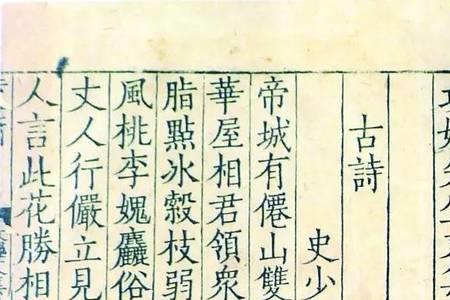 古詩
史少
帝城有僊山雙
華屋相君領衆
脂點氷縠枝弱
風桃李媿麤俗
丈人行儼立見
人言此花勝相